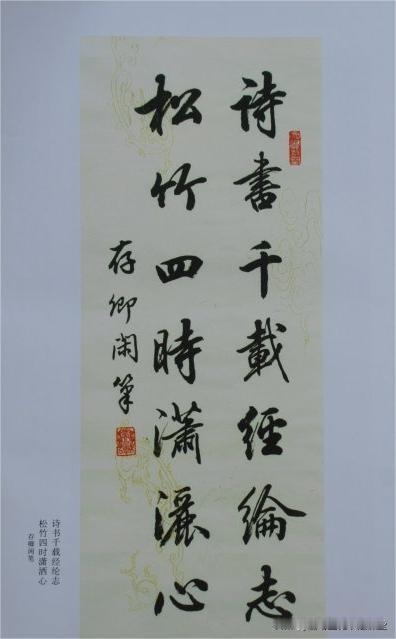 诗書千載經綸志
松竹四時瀟灑心
存卿闲筆
诗书千载经纶志
松竹四时潇洒心
存卿闲笔